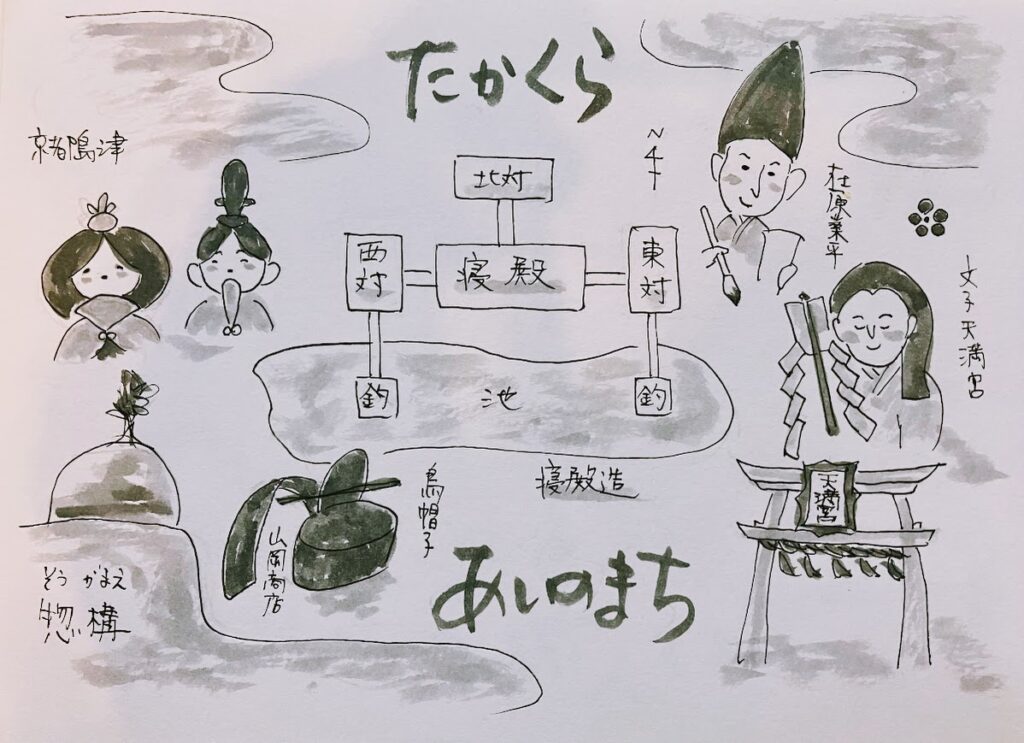 たかくら
京都島津
N
在原業平
文子天満宮
北対
西対
寝殿
東対
釣
池
釣
寝殿造
烏帽子
山岡商店
天満宮
そうがまえ
惣構
あいのまち